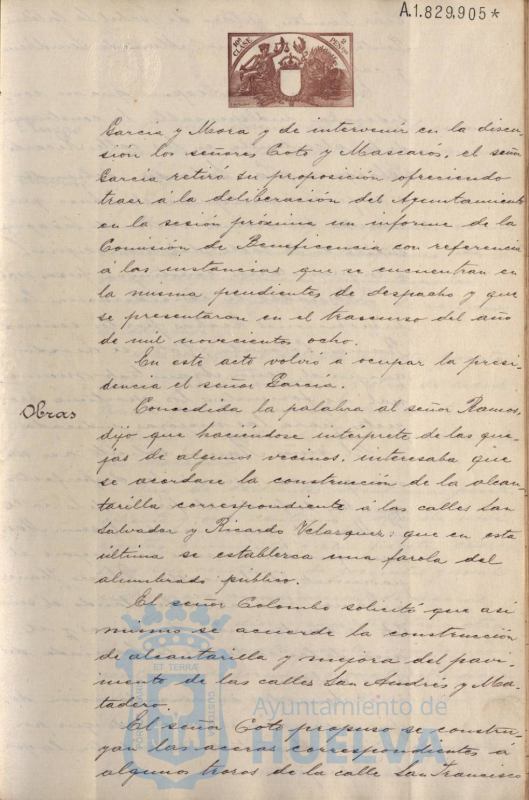 A.1.829.905*
10ª CLASE
2 PESETAS
García y Mora y de intervenir en la discu-
sión los señores Coto y Mascarós, el señor
García retiró su proposición ofreciendo
traer á la deliberación del Ayuntamiento
en la sesión próxima un informe de la
Comisión de Beneficencia con referencia
á las instancias que se encuentran en
la misma pendientes de despacho y que
se presentaran en el trascurso del año
de mil novecientos ocho.
En este acto volvió á ocupar la presi-
dencia el señor García.
Obras
Concedida la palabra al señor Ramos,
dijo que haciéndose intérprete de las que-
jas de algunos vecinos, interesaba que
se acordase la construcción de la alcan-
tarilla correspondiente á las calles San
Salvador y Ricardo Velazquez: que en esta
última se establezca una farola del
alumbrado público.
El señor Colombo solicitó que asi
mismo se acuerde la construcción
de alcantarilla y mejora del pavi-
mento de las calles San Andrés y Ma-
tadero.
El señor Coto propuso se constru-
yan las aceras correspondientes á
algunos trozos de la calle San Francisco
Ayuntamiento de
HUELVA
ET TERRA